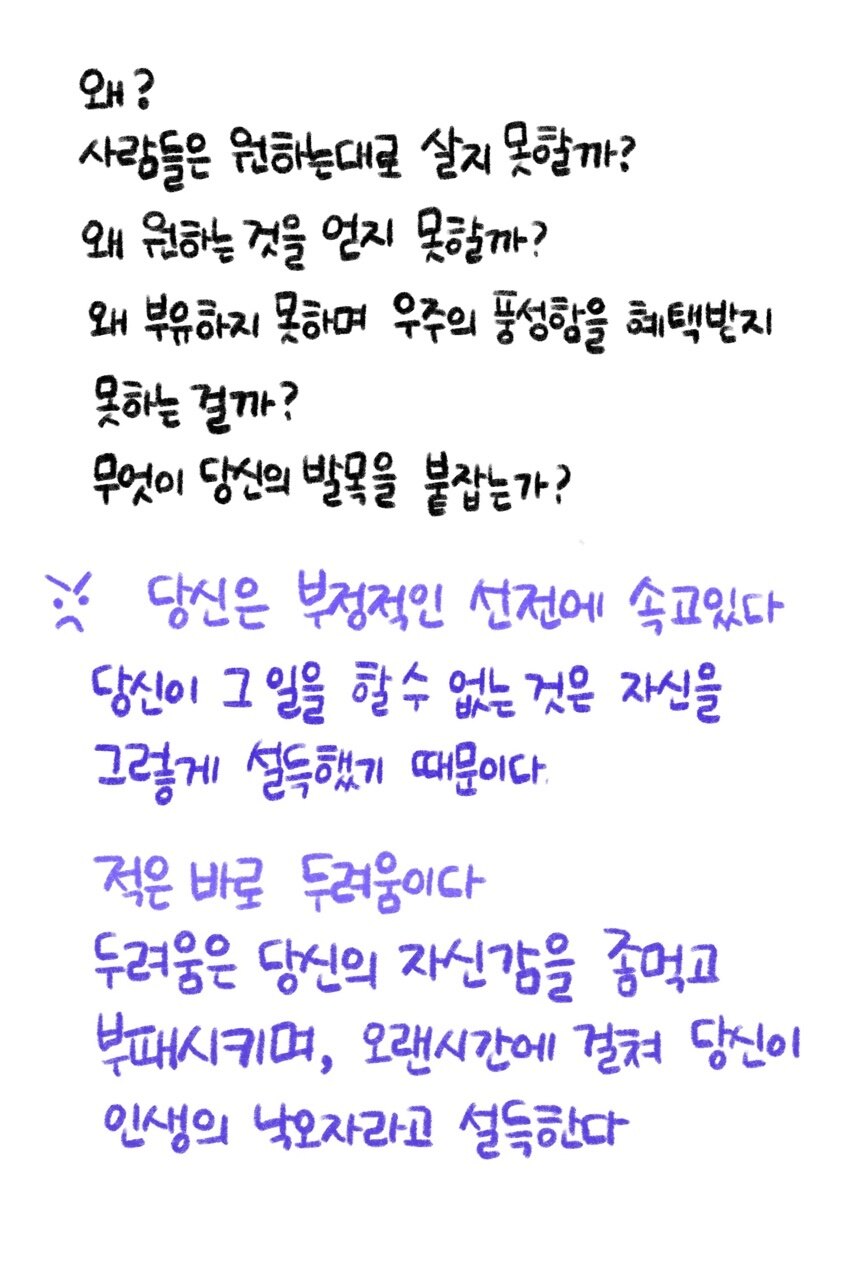 왜?
사람들은 원하는대로 살지 못할까?
왜 원하는 것을 얻지 못할까?
왜 부유하지 못하며 우주의 풍성함을 혜택받지
못하는 걸까?
무엇이 당신의 발목을 붙잡는가?
당신은 부정적인 선전에 속고있다
당신이 그 일을 할 수 없는 것은 자신을
그렇게 설득했기 때문이다.
적은 바로 두려움이다
두려움은 당신의 자신감을 좀먹고
부패시키며, 오랜시간에 걸쳐 당신이
인생의 낙오자라고 설득한다